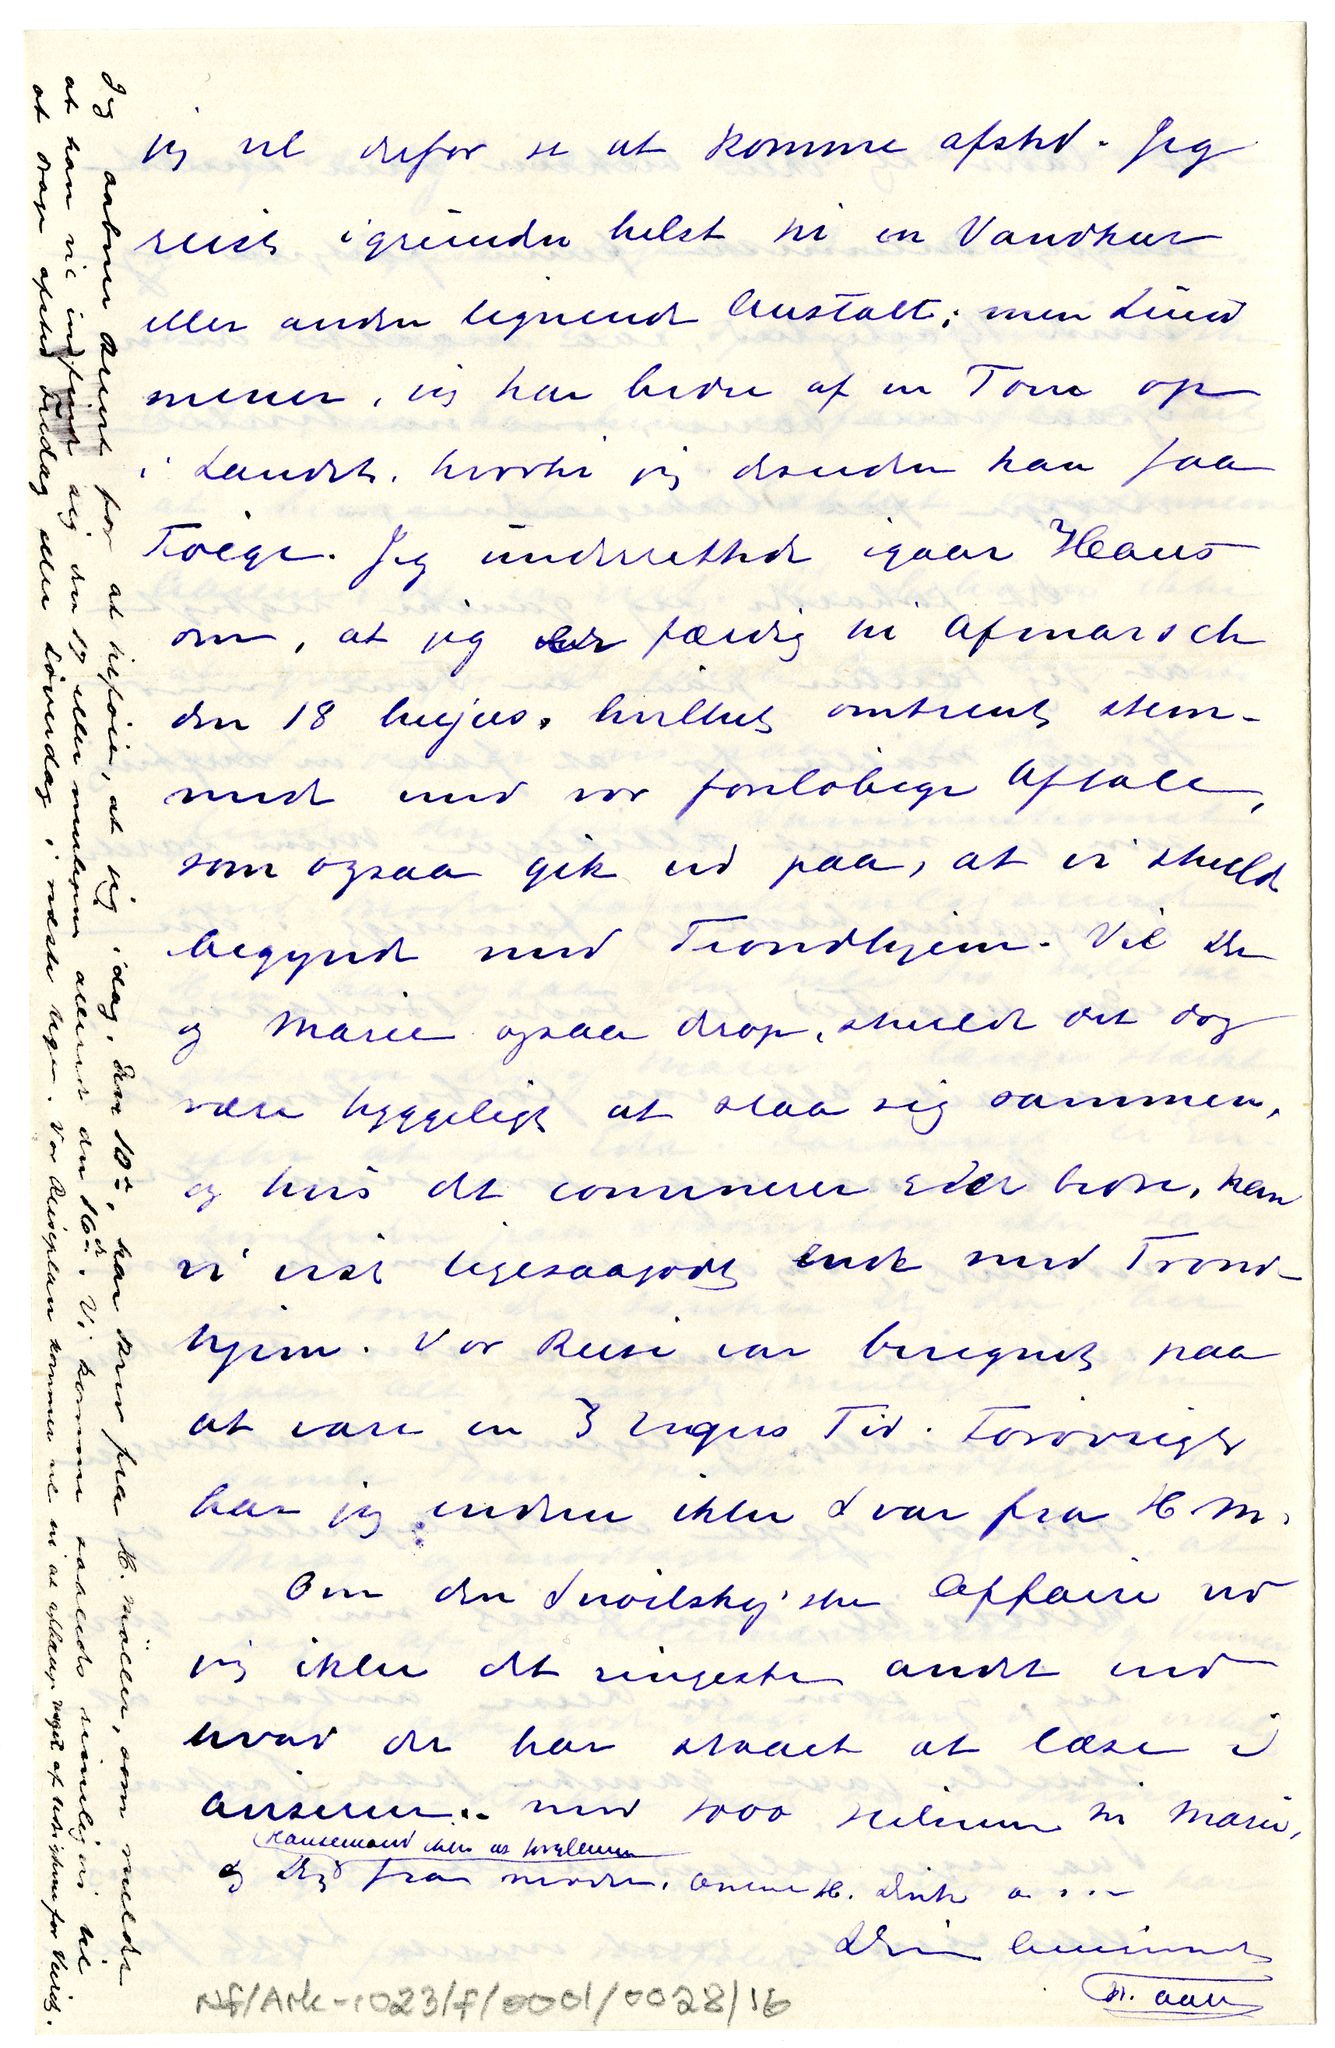 jeg vil derfor se at komme afsted. Jeg
reiste igrunden helst til en Vandkur
eller anden lignende Anstalt; men Lund
mener, jeg har bedre af en Tour op
i Landet, hvortil jeg desuden kan faa
Følge. Jeg underrettede igaar Hans
om, at jeg er færdig til Afmarsch
den 18 hujus, hvilket omtrent stem-
mede med vor foreløbige Aftale,
som ogsaa gik ud paa, at vi skulde
begynde med Trondhjem. Vil Du
og Marie ogsaa derop, skulde det dog
være hyggeligt at slaa sig sammen,
og hvis det convenerer Eder bedre, kan
vi vist ligesaagodt ende med Trond-
hjem. Vor Reise var beregnet paa
at vare en 3 Ugers Tid. Forøvrigt
har jeg endnu ikke Svar fra H M.
Om den Snoilsky'ske Affaire ved
jeg ikke det ringeste andet end
hvad der har staaet at læse i
Aviserne. Med 1000 Hilsener til Marie,
Hansemand ikke at forglemme
og Dig fra Moder, Anne H. Dikk o s. v.
Din hengivne
N. Aall
Jeg aabner Brevet for at tilføie, at jeg idag, den 10de, har Brev fra H. Møller, som melder
at han vil indfinde sig den 17 eller muligens allerede den 16de. Vi komme saaledes rimeligvis til
at drage afsted Fredag eller Løverdag i næste Uge. Vor Reiseplan kommer vel til at afhænge noget af Udsigterne for Veiret.
Nf/Ark-1023/f/0001/0028/16